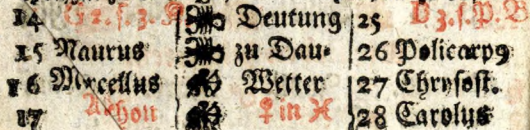 14 G 2. s. z. Deutung 25 D 3. s. P.
15 Maurus zu Dau- 26 Policarpꝰ
16 Marcellus Wetter 27 Chrysost.
17 Anthon ♀ in ♓ 28 Carolus